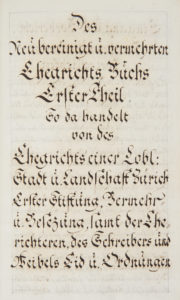 Des
Neü vereinigt ü. vermehrten
Ehegrichts Büchs
Erster Theil.
So da handelt
von des
Ehegrichts einer Lobl:
Stadt ü Landschafft Zürich
Erster Stifftüng, Vermehr
ü Besezüng, samt der Ehe
richteren, des Schreibers ünd
Weibels Eid ü Ordnüngen